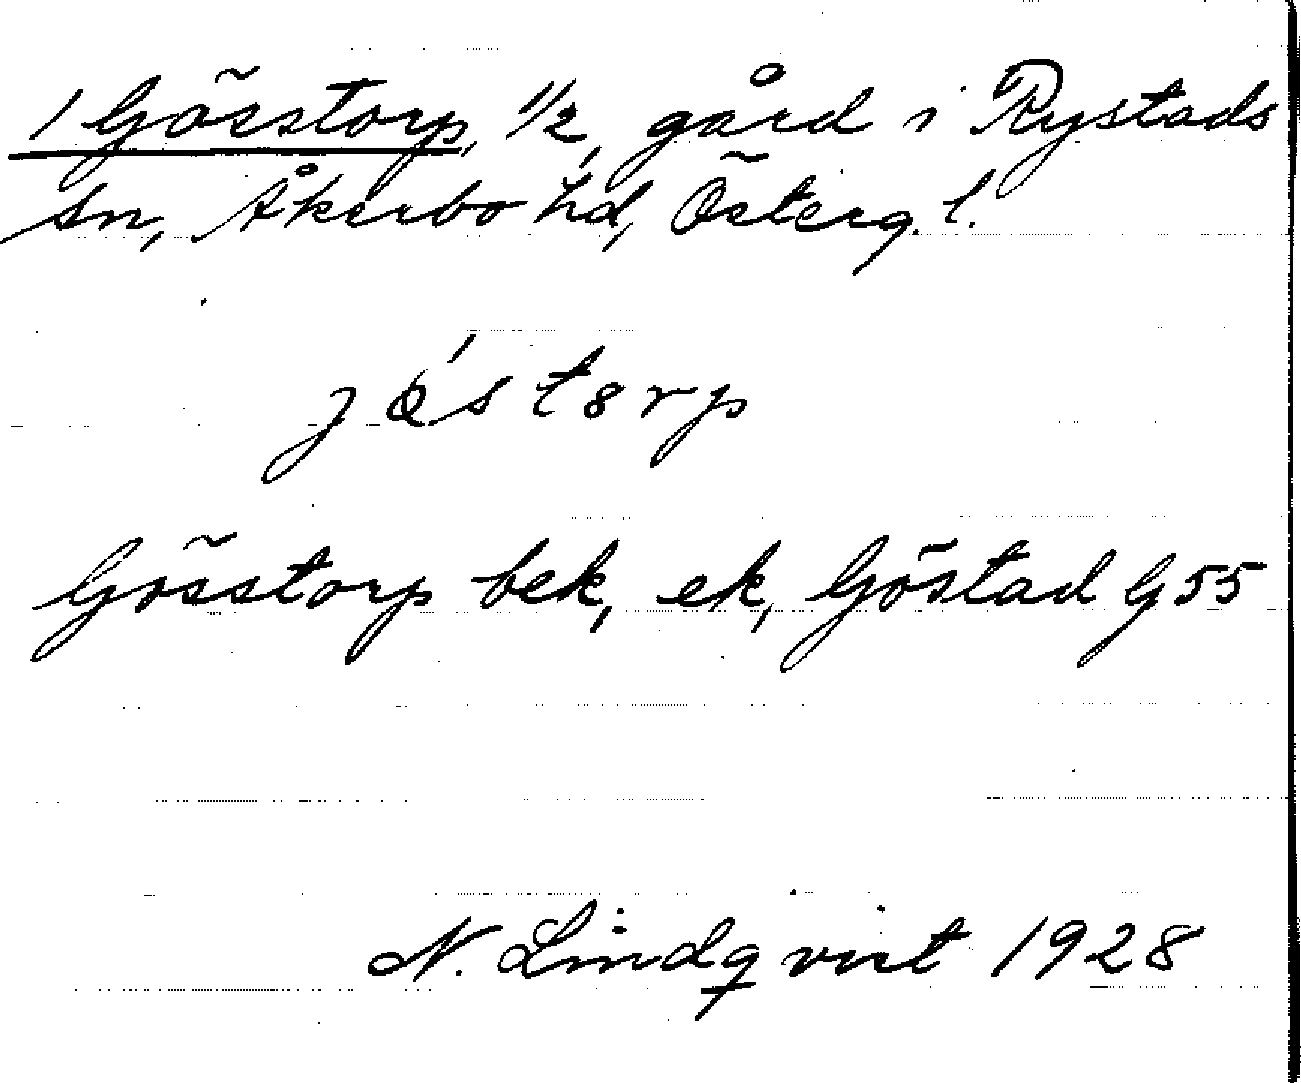 1 Gösstorp, 1/2, gård i Rystads
sn, Åkerbo hd, Österg. l.
jös torp
Gösstorp bek, ek, Göstad G 55
N. Lindqvist 1928